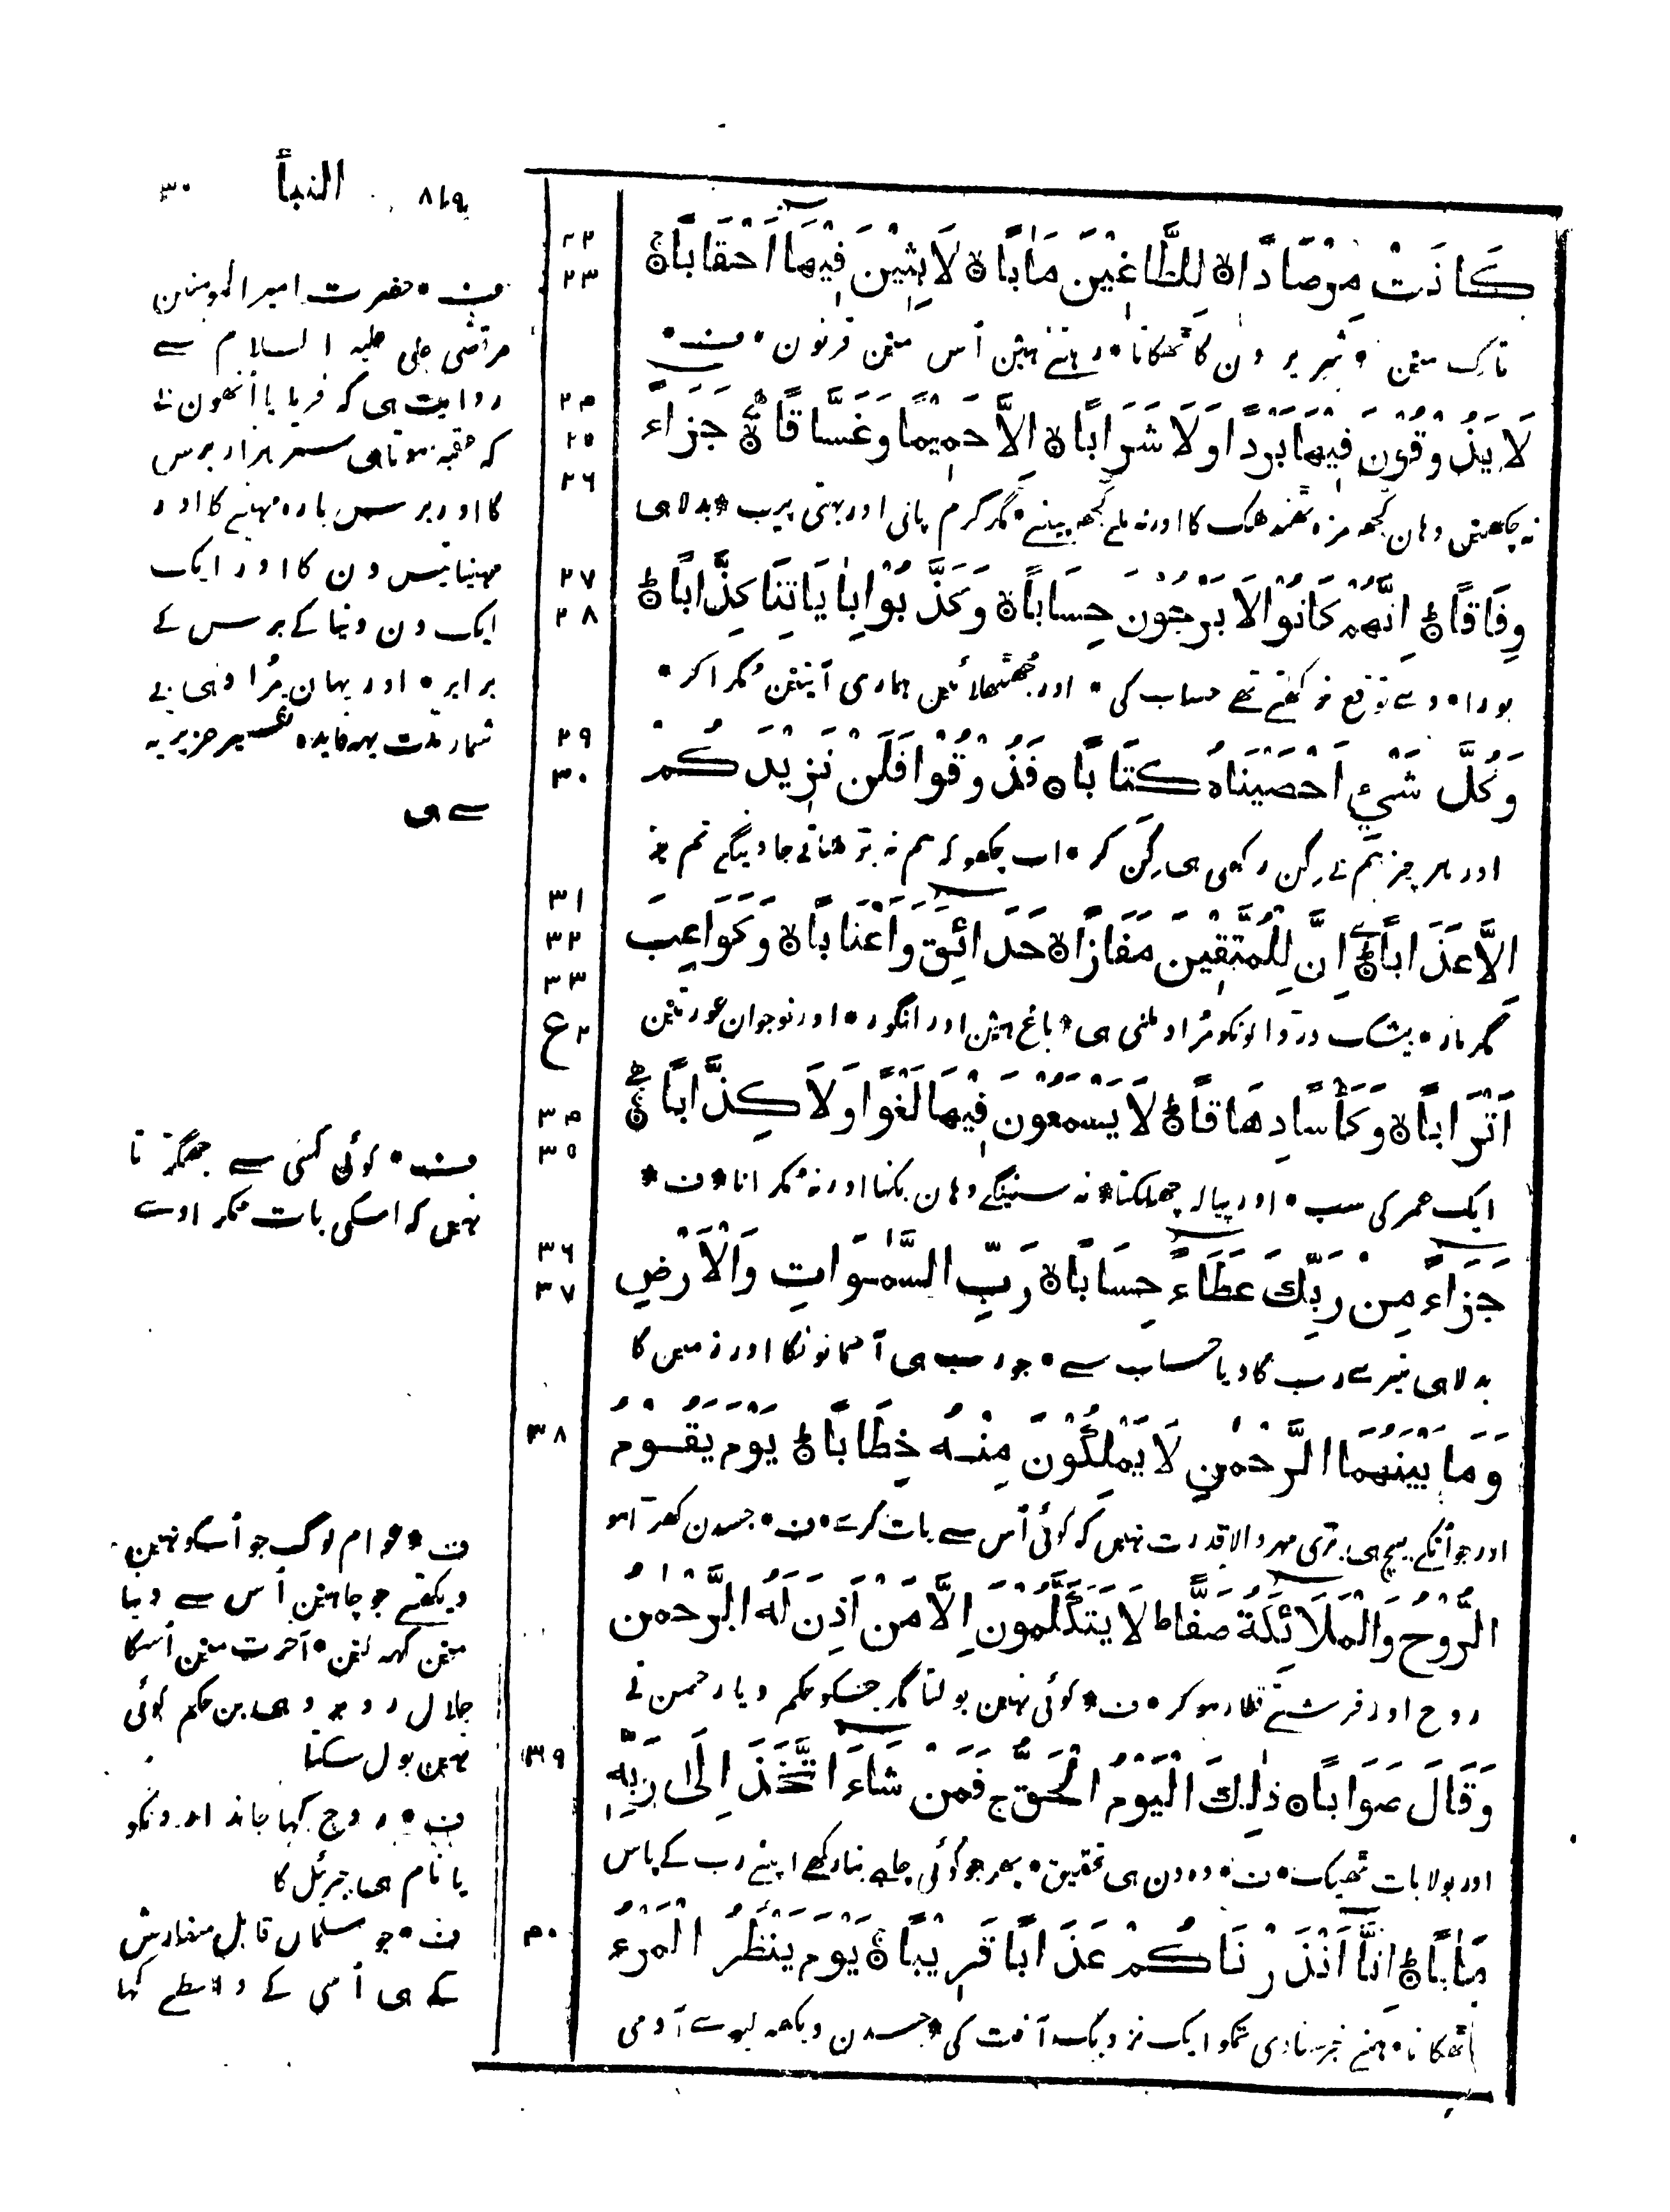 ٨٤٩ النبأ ٣٠
كَانَتْ مِرْصَادًا لِلطَّاغِيْنَ مَاٰبًا لَابِثِيْنَ فِيْهَا اَحْقَابًا
تاک مین • شریرون کا ٹھکانا • رہتے ہین اُس مین قرنون • ف •
لَا يَذُوْقُوْنَ فِيْهَا بَرْدًا وَلَا شَرَابًا اِلَّا حَمِيْمًا وَغَسَّاقًا جَزَاءً
نہ چکھین وہان کچھ مزہ ٹھنڈھک کا اور نہ ملے کچھ پینے • مگر گرم پانی اور بہتی پیب • بدلا ہی
وِفَاقًا اِنَّهُمْ كَانُوْا لَا يَرْجُوْنَ حِسَابًا وَكَذَّبُوْا بِاٰيَاتِنَا كِذَّابًا
پورا • وے توقع نرکھتے تھے حساب کی • اور جھٹھلائین ہماری آیتین مکراکر •
وَكُلَّ شَيْءٍ اَحْصَيْنَاهُ كِتَابًا فَذُوْقُوْا فَلَنْ نَزِيْدَكُمْ
اور ہر چیز ہم نے گن رکھی ہی گن کر • اب چکھو کہ ہم نہ بڑھاتے جاوینگے تم پر
اِلَّا عَذَابًا اِنَّ لِلْمُتَّقِيْنَ مَفَازًا حَدَائِقَ وَاَعْنَابًا وَكَوَاعِبَ
مگر مار • بیشک ڈر والونکو مراد ملنی ہی • باغ ہین اور انگور • اور نوجوان عورتین
اَتْرَابًا وَكَأْسًا دِهَاقًا لَا يَسْمَعُوْنَ فِيْهَا لَغْوًا وَلَا كِذَّابًا
ایک عمر کی سب • اور پیالہ چھلکتا • نہ سنینگے وہان بکنا اور نہ مکرانا • ف •
جَزَاءً مِنْ رَبِّكَ عَطَاءً حِسَابًا رَبِّ السَّمٰوَاتِ وَالْاَرْضِ
بدلا ہی تیرے رب کا دیا حساب سے • جو رب ہی آسمانونکا اور زمین کا
وَمَا بَيْنَهُمَا الرَّحْمٰنِ لَا يَمْلِكُوْنَ مِنْهُ خِطَابًا يَوْمَ يَقُوْمُ
اور جو اُنکے بیچ ہی بڑی مہر والا قدرت نہین کہ کوئی اُس سے بات کرے • ف • جسدن کھڑا ہو
الرُّوْحُ وَالْمَلَائِكَةُ صَفًّا ط لَا يَتَكَلَّمُوْنَ اِلَّا مَنْ اَذِنَ لَهُ الرَّحْمٰنُ
روح اور فرشتے قطار ہوکر • ف • کوئی نہین بولتا مگر جسکو حکم دیا رحمن نے
وَقَالَ صَوَابًا ذٰلِكَ الْيَوْمُ الْحَقُّ ج فَمَنْ شَاءَ اتَّخَذَ اِلٰى رَبِّهٖ
اور بولا بات ٹھیک • ف • وہ دن ہی تحقیق • پھر جو کوئی چاہے بنا رکھے اپنے رب کے پاس
مَاٰبًا اِنَّا اَنْذَرْنَاكُمْ عَذَابًا قَرِيْبًا يَوْمَ يَنْظُرُ الْمَرْءُ
ٹھکانا • ہمنے خبر سنادی تمکو ایک نزدیک آفت کی • جسدن دیکھہ لیوے آدمی
٢٢
٢٣
٢٤
٢٥
٢٦
٢٧
٢٨
٢٩
٣٠
٣١
٣٢
٣٣
ع ٢
٣٤
٣٥
٣٦
٣٧
٣٨
٣٩
٤٠
ف • حضرت امیر المومنین
مرتضی علی علیہ السلام سے
روایت ہی کہ فرمایا اُنھون نے
کہ حقبہ ہوتا ہی ستر ہزار برس
کا اور برس بارہ مہینے کا اور
مہینا تیس دن کا اور ایک
ایک دن دنیا کے برس کے
برابر • اور یہان مراد ہی بے
شمار مدت یہہ فایدہ تفسیر عزیزیہ
سے ہی
ف • کوئی کسی سے جھگڑتا
نہین کہ اسکی بات مکراوے
ف • عوام لوگ جو اُسکو نہین
دیکھتے جو چاہین اُس سے دنیا
مین کہہ لین • آخرت مین اُسکا
جلال روبرو ہی بن حکم کوئی
نہین بول سکتا
ف • روح کہا جاندارونکو
یا نام ہی جبرئیل کا
ف • جو مسلمان قابل سفارش
کے ہی اُسی کے واسطے کہا